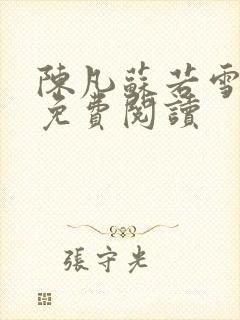 陳凡蘇若雪
免費閱讀
張守光